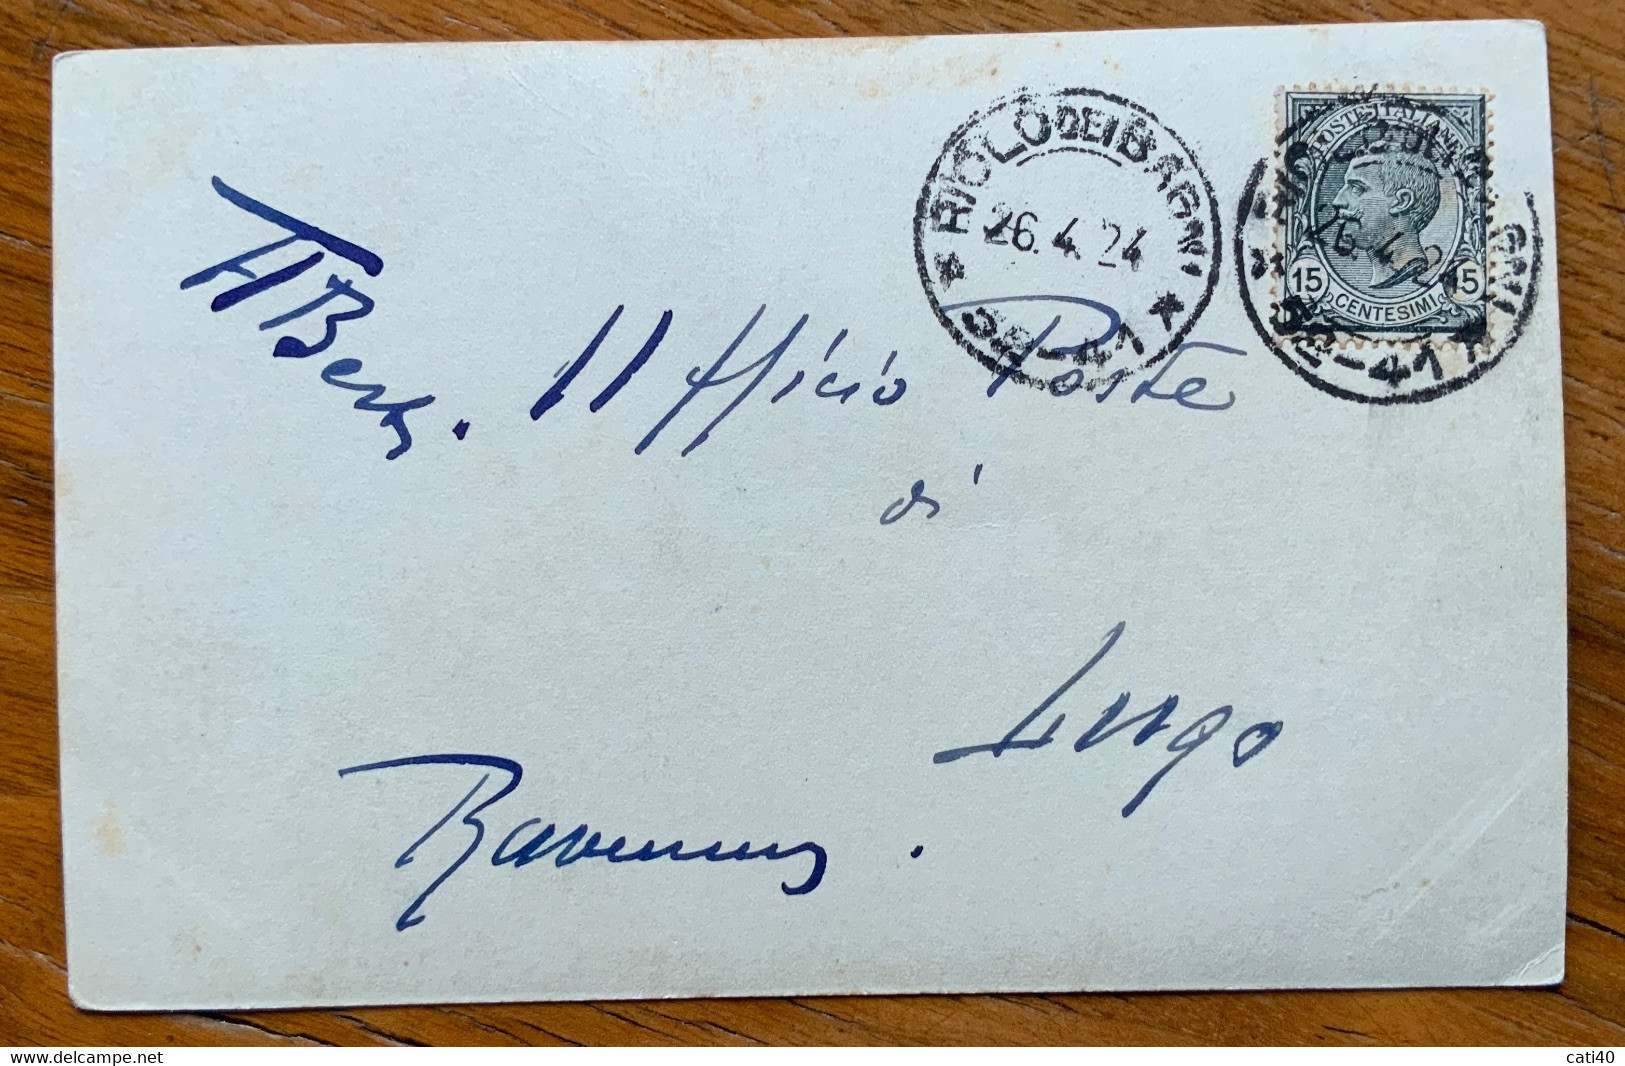 RIOLO DEI BAGNI
26.4.24
38-41
POSTE ITALIANE
15 15
CENTESIMI
26.4.2
-41
Ufficio Poste
di
Lugo
Ravenna.
delcampe.net
cati40